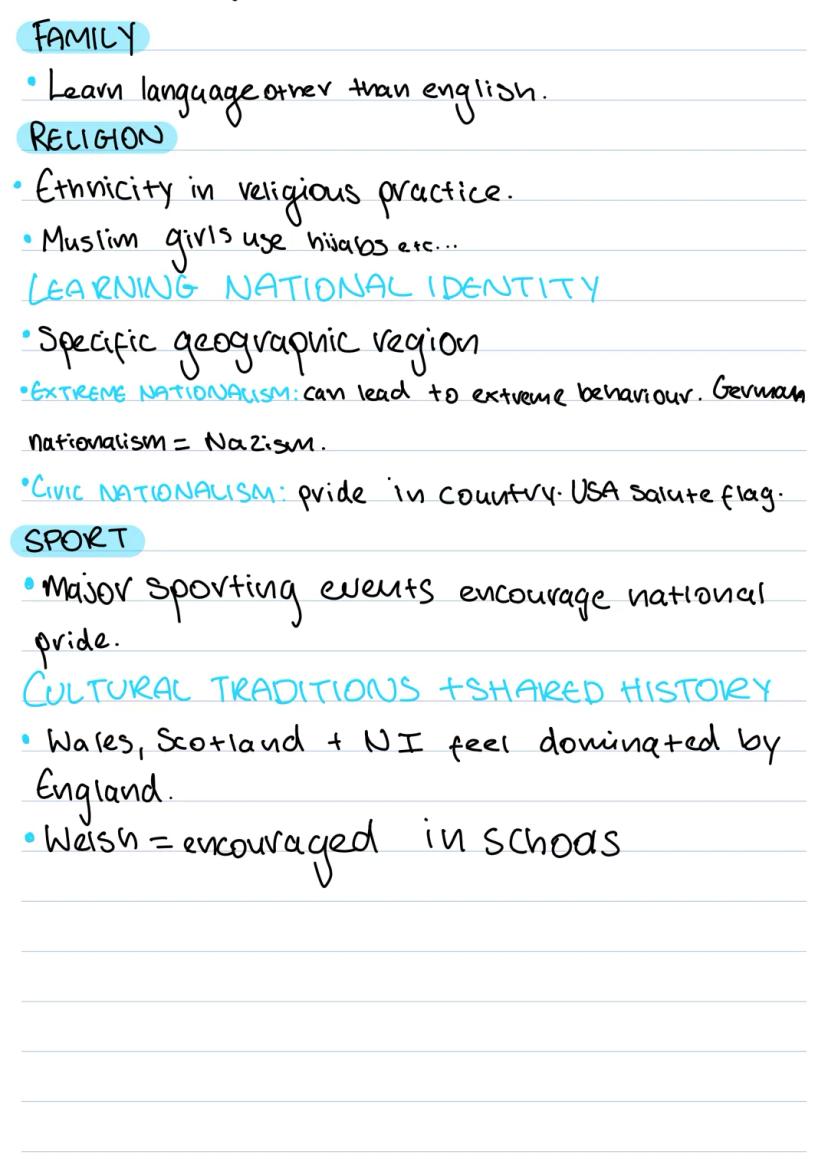 FAMILY
• Learn language other than english.
RELIGION
• Ethnicity in religious practice.
• Muslim girls use hijabs etc...
LEARNING NATIONAL IDENTITY
• Specific geographic region
• EXTREME NATIONALISM: can lead to extreme behaviour. German
nationalism = Nazism.
• CIVIC NATIONALISM: pride in country. USA salute flag.
SPORT
• Major sporting events encourage national
pride.
CULTURAL TRADITIONS + SHARED HISTORY
• Wales, Scotland + NI feel dominated by
England.
• Welsh = encouraged in schools